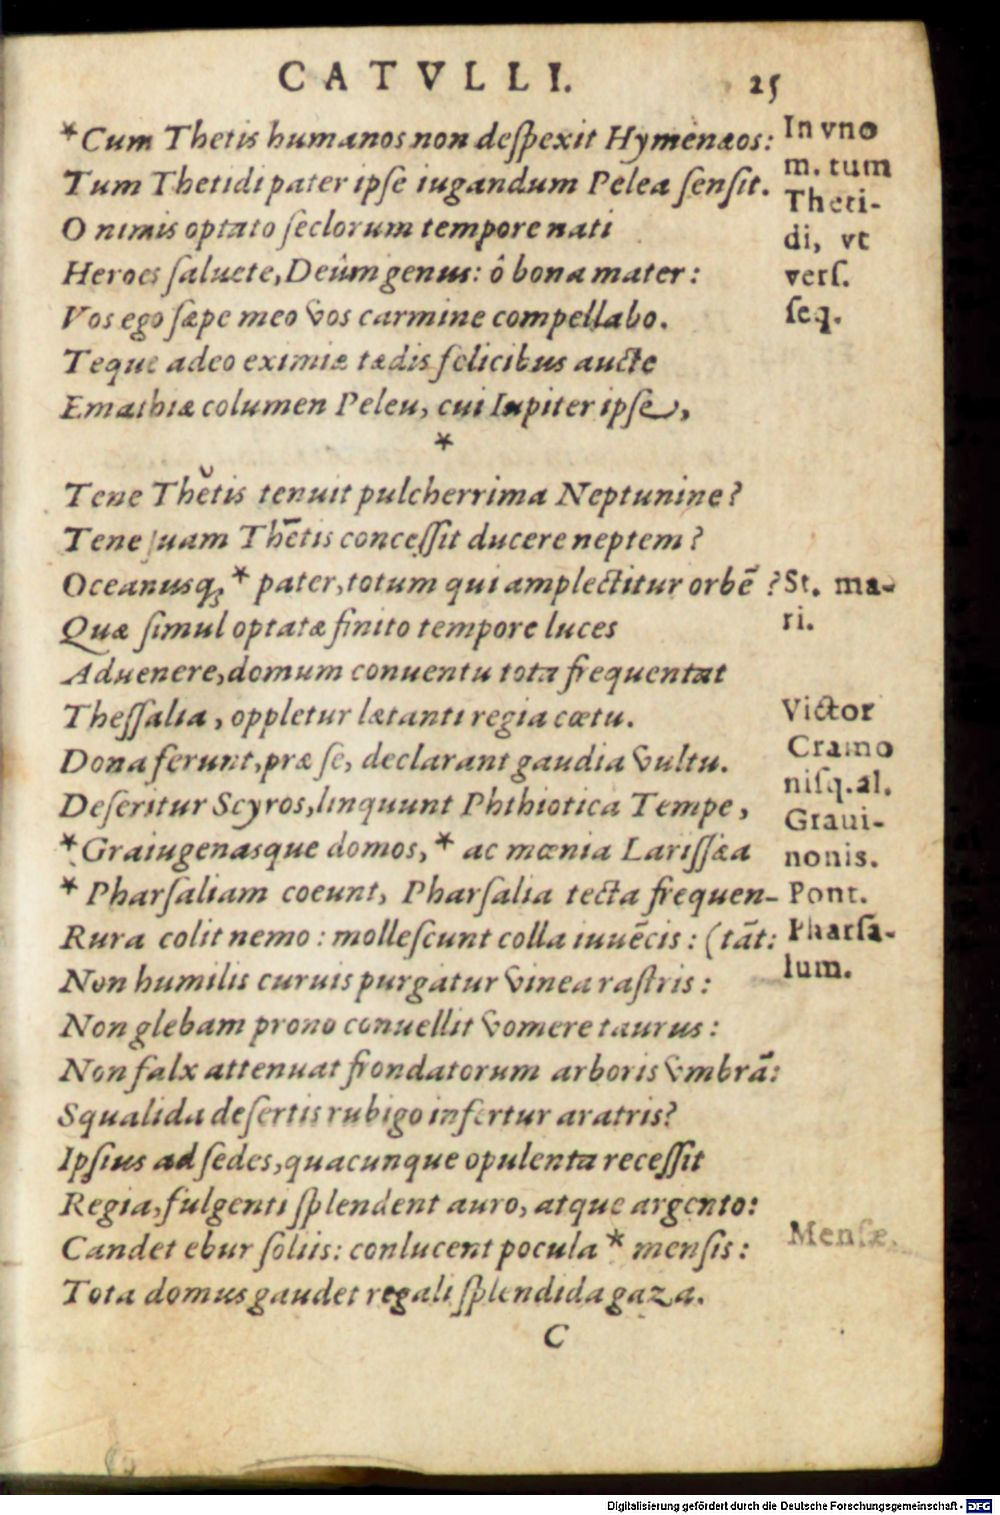 CATVLLI. 25
*Cum Thetis humanos non despexit Hymenæos:
Tum Thetidi pater ipse iugandum Pelea sensit.
O nimis optato seclorum tempore nati
Heroes saluete, Deûm genus: ô bona mater:
Vos ego sæpe meo vos carmine compellabo.
Teque adeo eximiæ tædis felicibus aucte
Emathiæ columen Peleu, cui Iupiter ipse,
*
Tene Thĕtis tenuit pulcherrima Neptunine?
Tene suam Thētis concessit ducere neptem?
Oceanusq; * pater, totum qui amplectitur orbē?
Quæ simul optatæ finito tempore luces
Aduenere, domum conuentu tota frequentat
Thessalia, oppletur lætanti regia cœtu.
Dona ferunt, præ se, declarant gaudia vultu.
Deseritur Scyros, linquunt Phthiotica Tempe,
*Graiugenasque domos, * ac mœnia Larissæa
* Pharsaliam coeunt, Pharsalia tecta frequen-
Rura colit nemo: mollescunt colla iuuēcis: (tāt:
Non humilis curuis purgatur vinea rastris:
Non glebam prono conuellit vomere taurus:
Non falx attenuat frondatorum arboris vmbrā:
Squalida desertis rubigo infertur aratris?
Ipsius ad sedes, quacunque opulenta recessit
Regia, fulgenti splendent auro, atque argento:
Candet ebur soliis: conlucent pocula * mensis:
Tota domus gaudet regali splendida gaza.
C
In vno
m. tum
Theti-
di, vt
vers.
seq.
St. ma-
ri.
Victor
Cramo
nisq. al.
Graui-
nonis.
Pont.
Pharsa-
lum.
Mensæ.
Digitalisierung gefördert durch die Deutsche Forschungsgemeinschaft - DFG